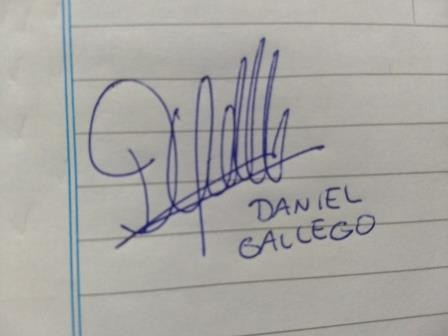 DANIEL
GALLEGO